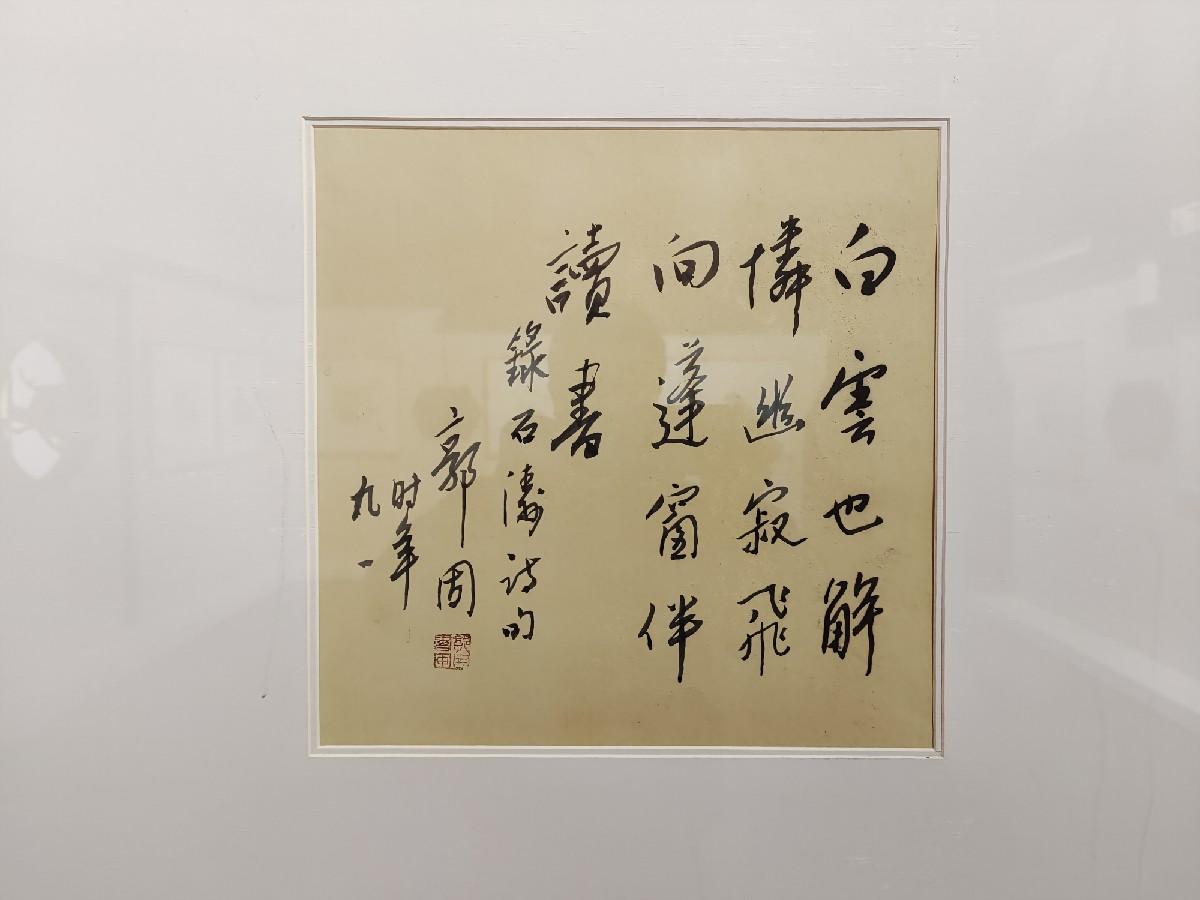 白雲也解
憐幽寂飛
向蓬窗伴
讀書
錄石濤詩句
郭周
时年
九一